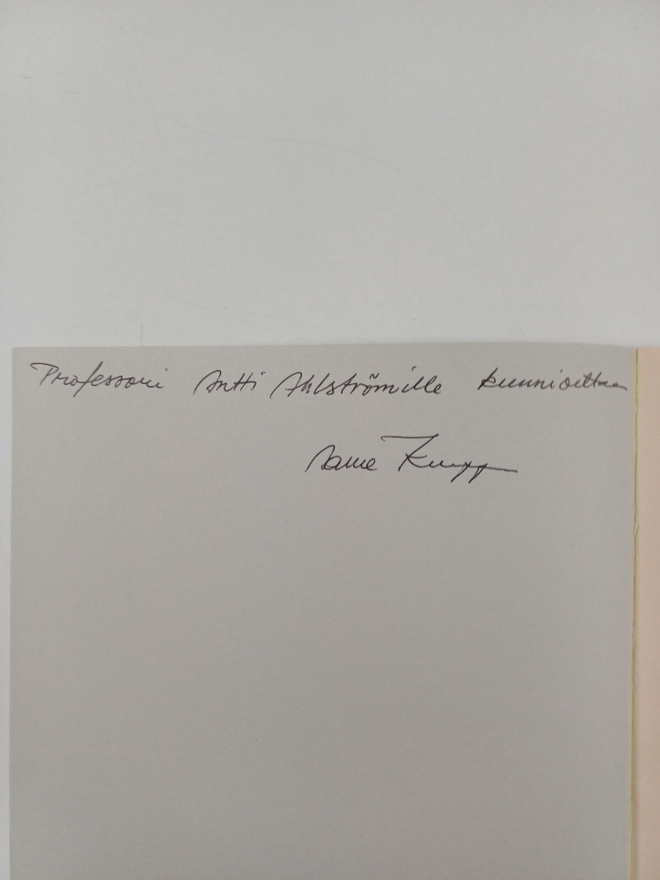 Professori Antti Ahlströmille kunnioittaen